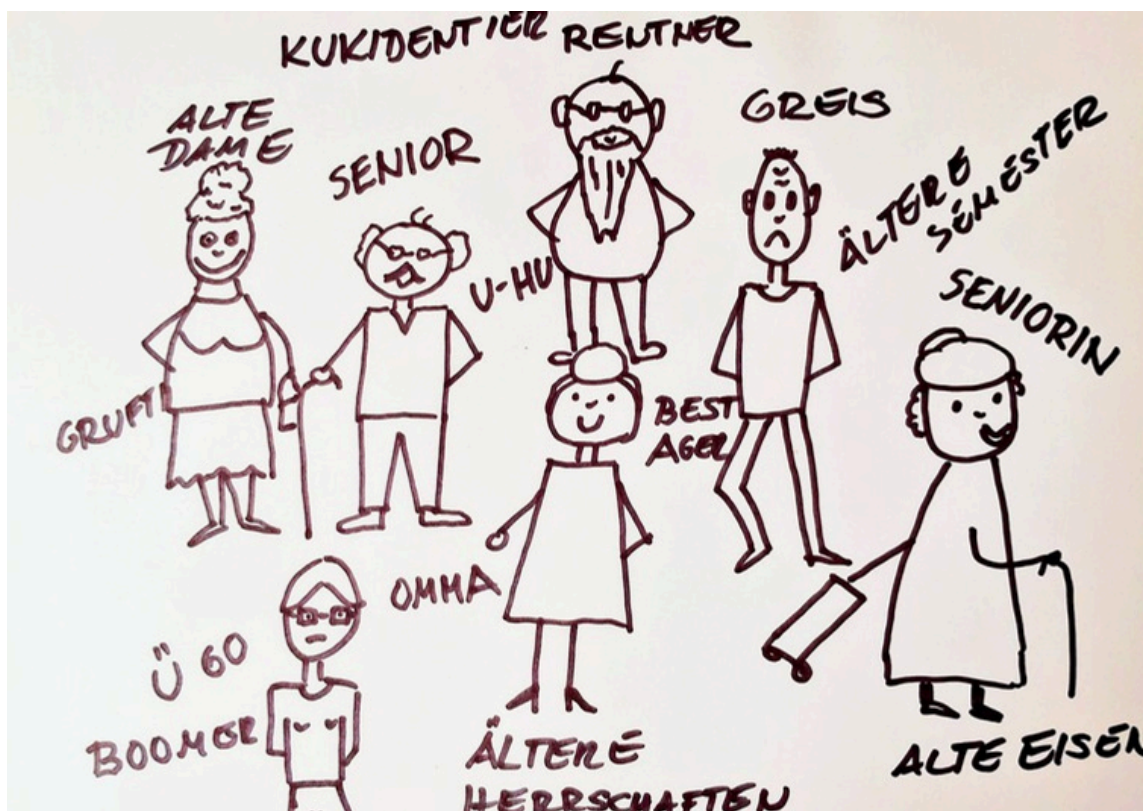 KUKIDENTIER
RENTNER
ALTE
DAME
SENIOR
GREIS
ÄLTERE
SEMESTER
U-HU
SENIORIN
GRUFTI
BEST
AGER
OMMA
Ü 60
BOOMER
ÄLTERE
HERRSCHAFTEN
ALTE EISEN